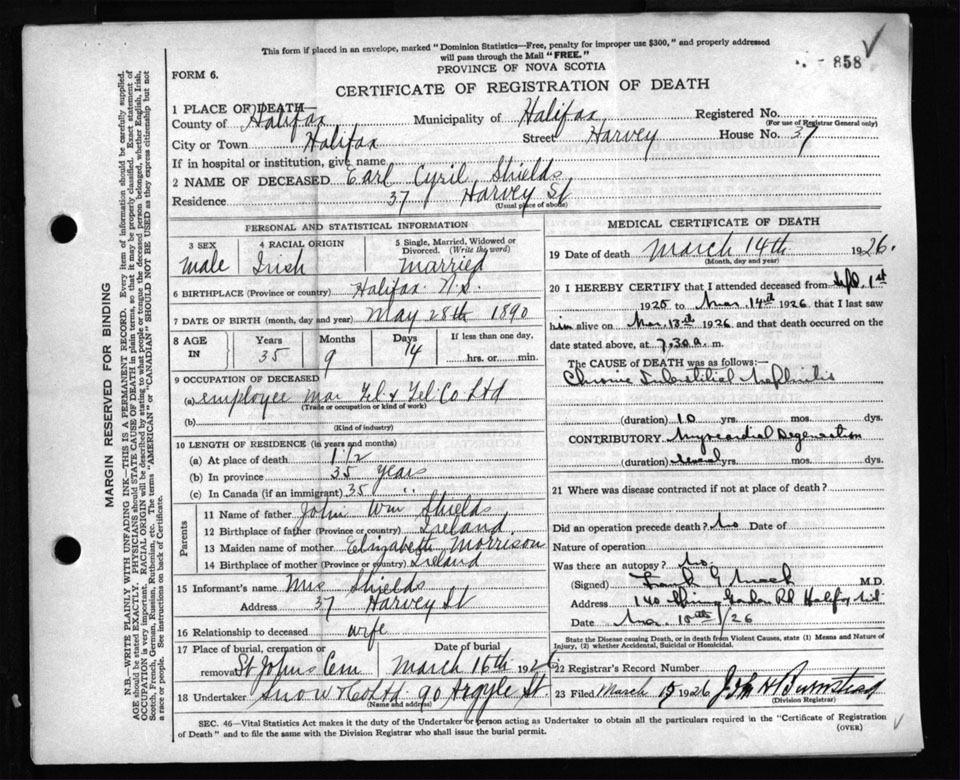 This form if placed in an envelope, marked "Dominion Statistics—Free, penalty for improper use $300," and properly addressed
will pass through the Mail "FREE."
858
FORM 6.
PROVINCE OF NOVA SCOTIA
CERTIFICATE OF REGISTRATION OF DEATH
1 PLACE OF DEATH—
County of Halifax Municipality of Halifax Registered No.
(For use of Registrar General only)
City or Town Halifax Street Harvey House No. 37
If in hospital or institution, give name
2 NAME OF DECEASED Earl Cyril Shields
Residence 37 Harvey St
(Usual place of abode)
PERSONAL AND STATISTICAL INFORMATION
3 SEX
Male
4 RACIAL ORIGIN
Irish
5 Single, Married, Widowed or
Divorced. (Write the word)
Married
6 BIRTHPLACE (Province or country) Halifax N.S.
7 DATE OF BIRTH (month, day and year) May 28th 1890
8 AGE IN
Years 35
Months 9
Days 14
If less than one day,
hrs. or min.
9 OCCUPATION OF DECEASED
(a) employee Mar Tel & Tel Co Ltd
(Trade or occupation or kind of work)
(b)
(Kind of industry)
10 LENGTH OF RESIDENCE (in years and months)
(a) At place of death 1 1/2
(b) In province 35 years
(c) In Canada (if an immigrant) 35 "
Parents
11 Name of father John Wm Shields
12 Birthplace of father (Province or country) Ireland
13 Maiden name of mother Elizabeth Morrison
14 Birthplace of mother (Province or country) Ireland
15 Informant's name Mrs Shields
Address 37 Harvey St
16 Relationship to deceased wife
17 Place of burial, cremation or Date of burial
removal St Johns Cem March 16th 1926
18 Undertaker Snow & Co Ltd 90 Argyle St
(Name and address)
MEDICAL CERTIFICATE OF DEATH
19 Date of death March 14th 1926.
(Month, day and year)
20 I HEREBY CERTIFY that I attended deceased from Sept. 1st
1925 to Mar. 14th 1926, that I last saw
him alive on Mar. 13th 1926 and that death occurred on the
date stated above, at 7.30 a. m.
The CAUSE of DEATH was as follows:—
Chronic Interstitial Nephritis
(duration) 10 yrs. mos. dys.
CONTRIBUTORY Myocardial Degeneration
(duration) several yrs. mos. dys.
21 Where was disease contracted if not at place of death?
Did an operation precede death? No Date of
Nature of operation
Was there an autopsy? No.
(Signed) Frank G Mack M.D.
Address 140 Spring Garden Rd Halifax N.S.
Date Mar. 15th /26
State the Disease causing Death, or in death from Violent Causes, state (1) Means and Nature of
Injury, (2) whether Accidental, Suicidal or Homicidal.
22 Registrar's Record Number
23 Filed March 15 1926 John H Burnstead
(Division Registrar)
SEC. 46—Vital Statistics Act makes it the duty of the Undertaker or person acting as Undertaker to obtain all the particulars required in the "Certificate of Registration
of Death" and to file the same with the Division Registrar who shall issue the burial permit.
(OVER)
MARGIN RESERVED FOR BINDING
N.B.—WRITE PLAINLY WITH UNFADING INK—THIS IS A PERMANENT RECORD. Every item of information should be carefully supplied.
AGE should be stated EXACTLY. PHYSICIANS should state CAUSE OF DEATH in plain terms, so that it may be properly classified. Exact statement of
OCCUPATION is very important. RACIAL ORIGIN will be described by stating to what people or tongue the deceased person belonged, whether English, Irish,
Scotch, French, German, Russian, Ruthenian, etc. The terms "AMERICAN" or "CANADIAN" SHOULD NOT BE USED as they express citizenship but not
a race or people. See instructions on back of Certificate.